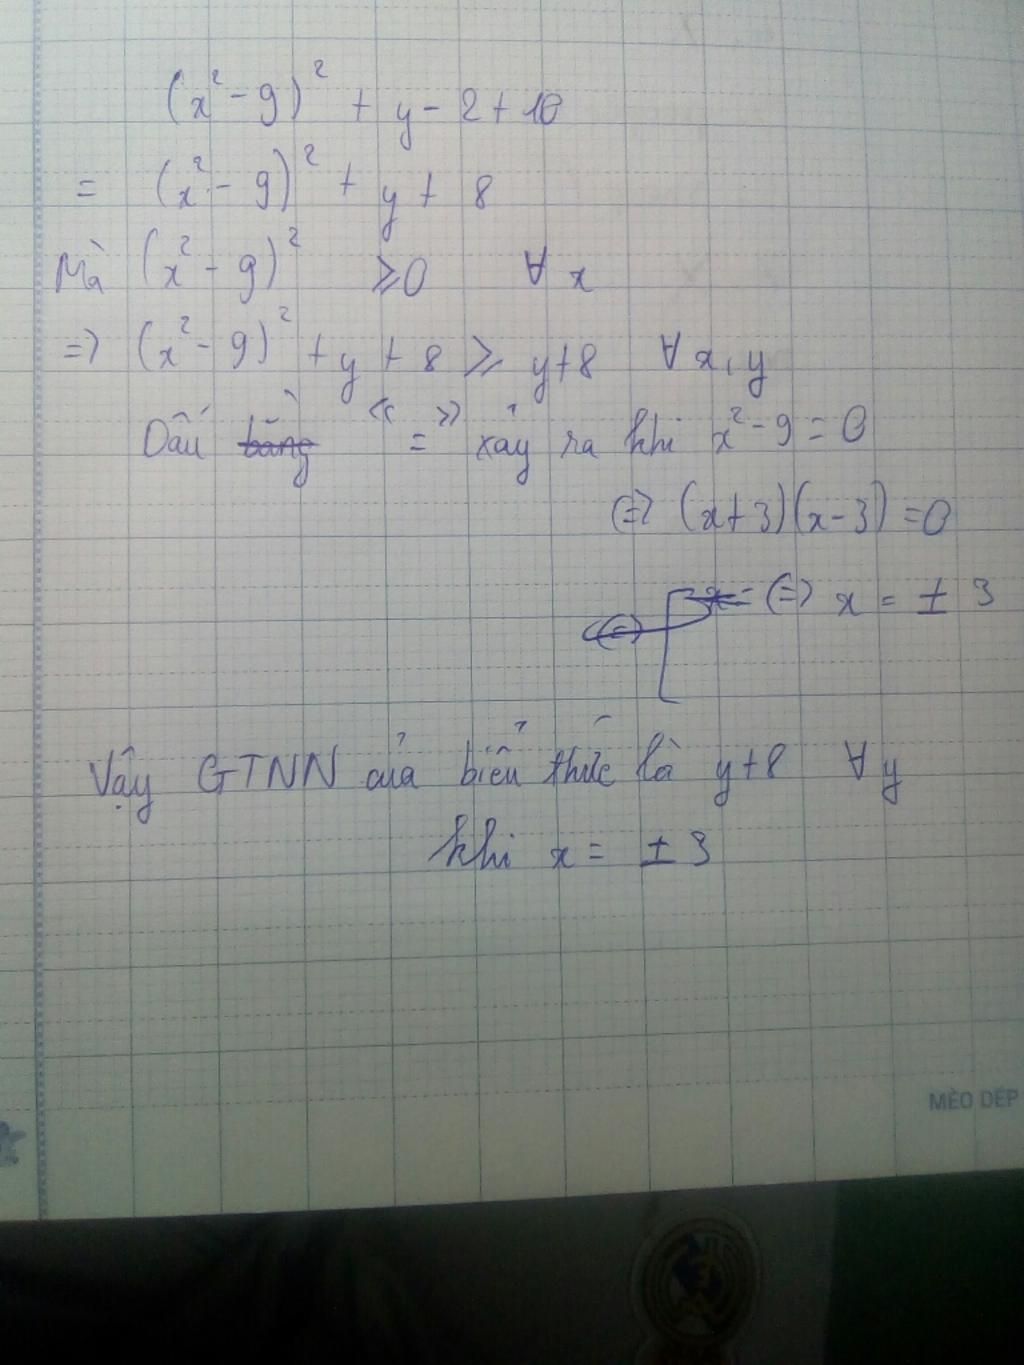 (x² - 9)² + y - 2 + 10
= (x² - 9)² + y + 8
Mà (x² - 9)² ⩾ 0 ∀ x
=> (x² - 9)² + y + 8 ⩾ y+8 ∀ x, y
Dấu bằng "=" xảy ra khi x² - 9 = 0
(=> (x+3)(x-3) = 0
(=) [ x = (=> x = ± 3
Vậy GTNN của biểu thức là y+8 ∀ y
khi x = ± 3
MÈO DẸP